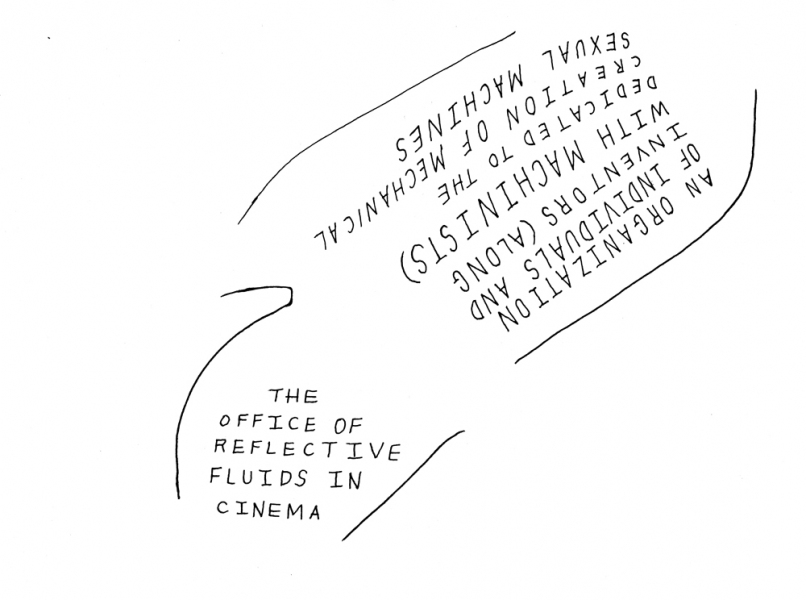 AN ORGANIZATION
OF INDIVIDUALS AND
INVENTORS (ALONG
WITH MACHINISTS)
DEDICATED TO THE
CREATION OF MECHANICAL
SEXUAL MACHINES
THE
OFFICE OF
REFLECTIVE
FLUIDS IN
CINEMA